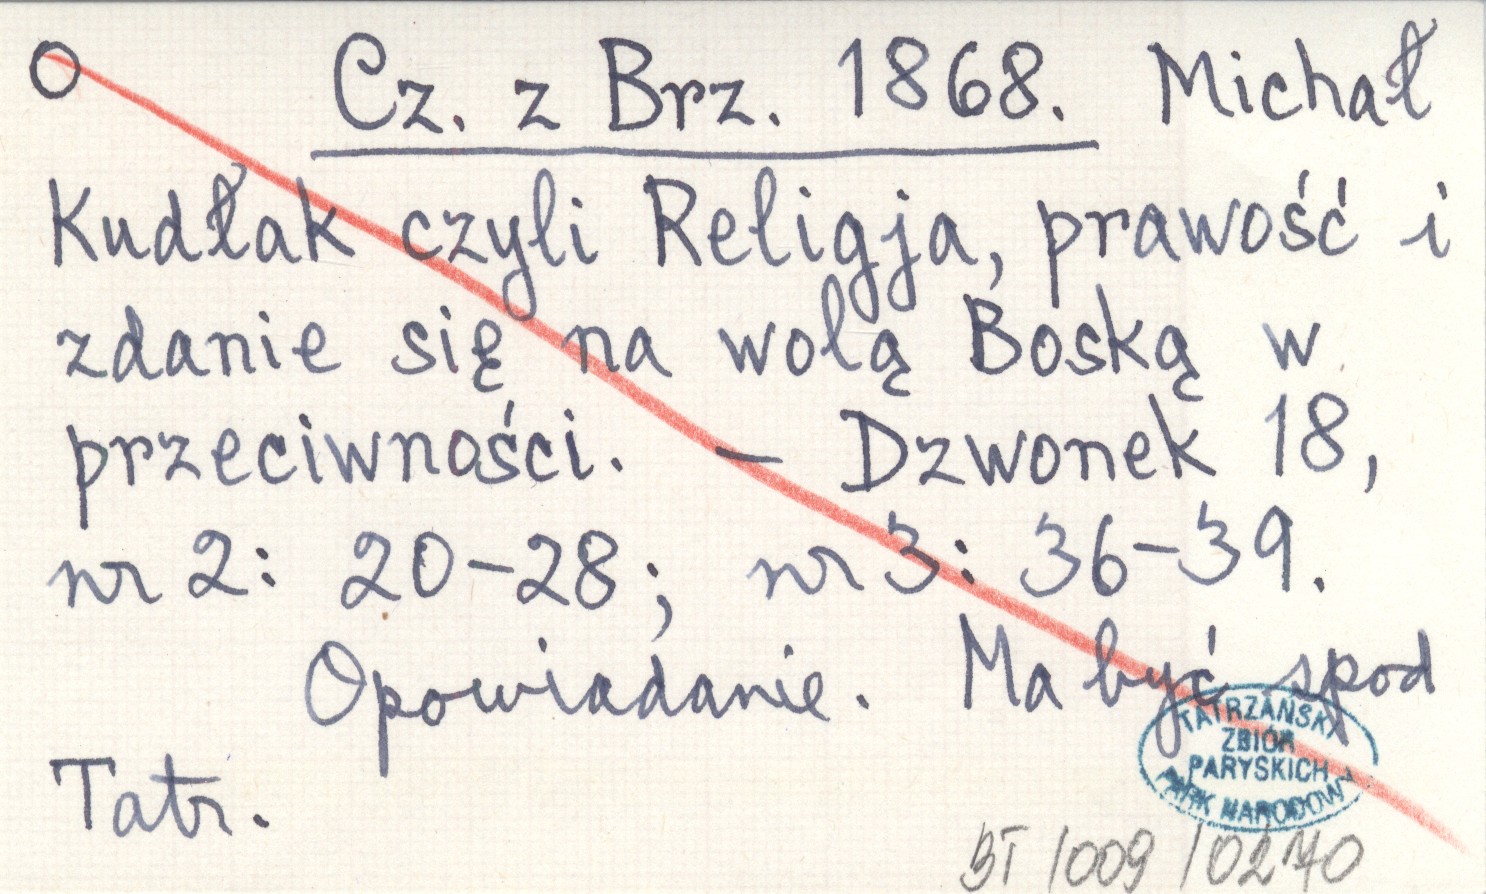 O Cz. z Brz. 1868. Michał
Kudłak czyli Religja, prawość i
zdanie się na wolą Boską w
przeciwności. — Dzwonek 18,
nr 2: 20-28; nr 3: 36-39.
Opowiadanie. Ma być spod
Tatr.
TATRZAŃSKI
ZBIÓR
PARYSKICH
PARK NARODOWY
BT/009/0270